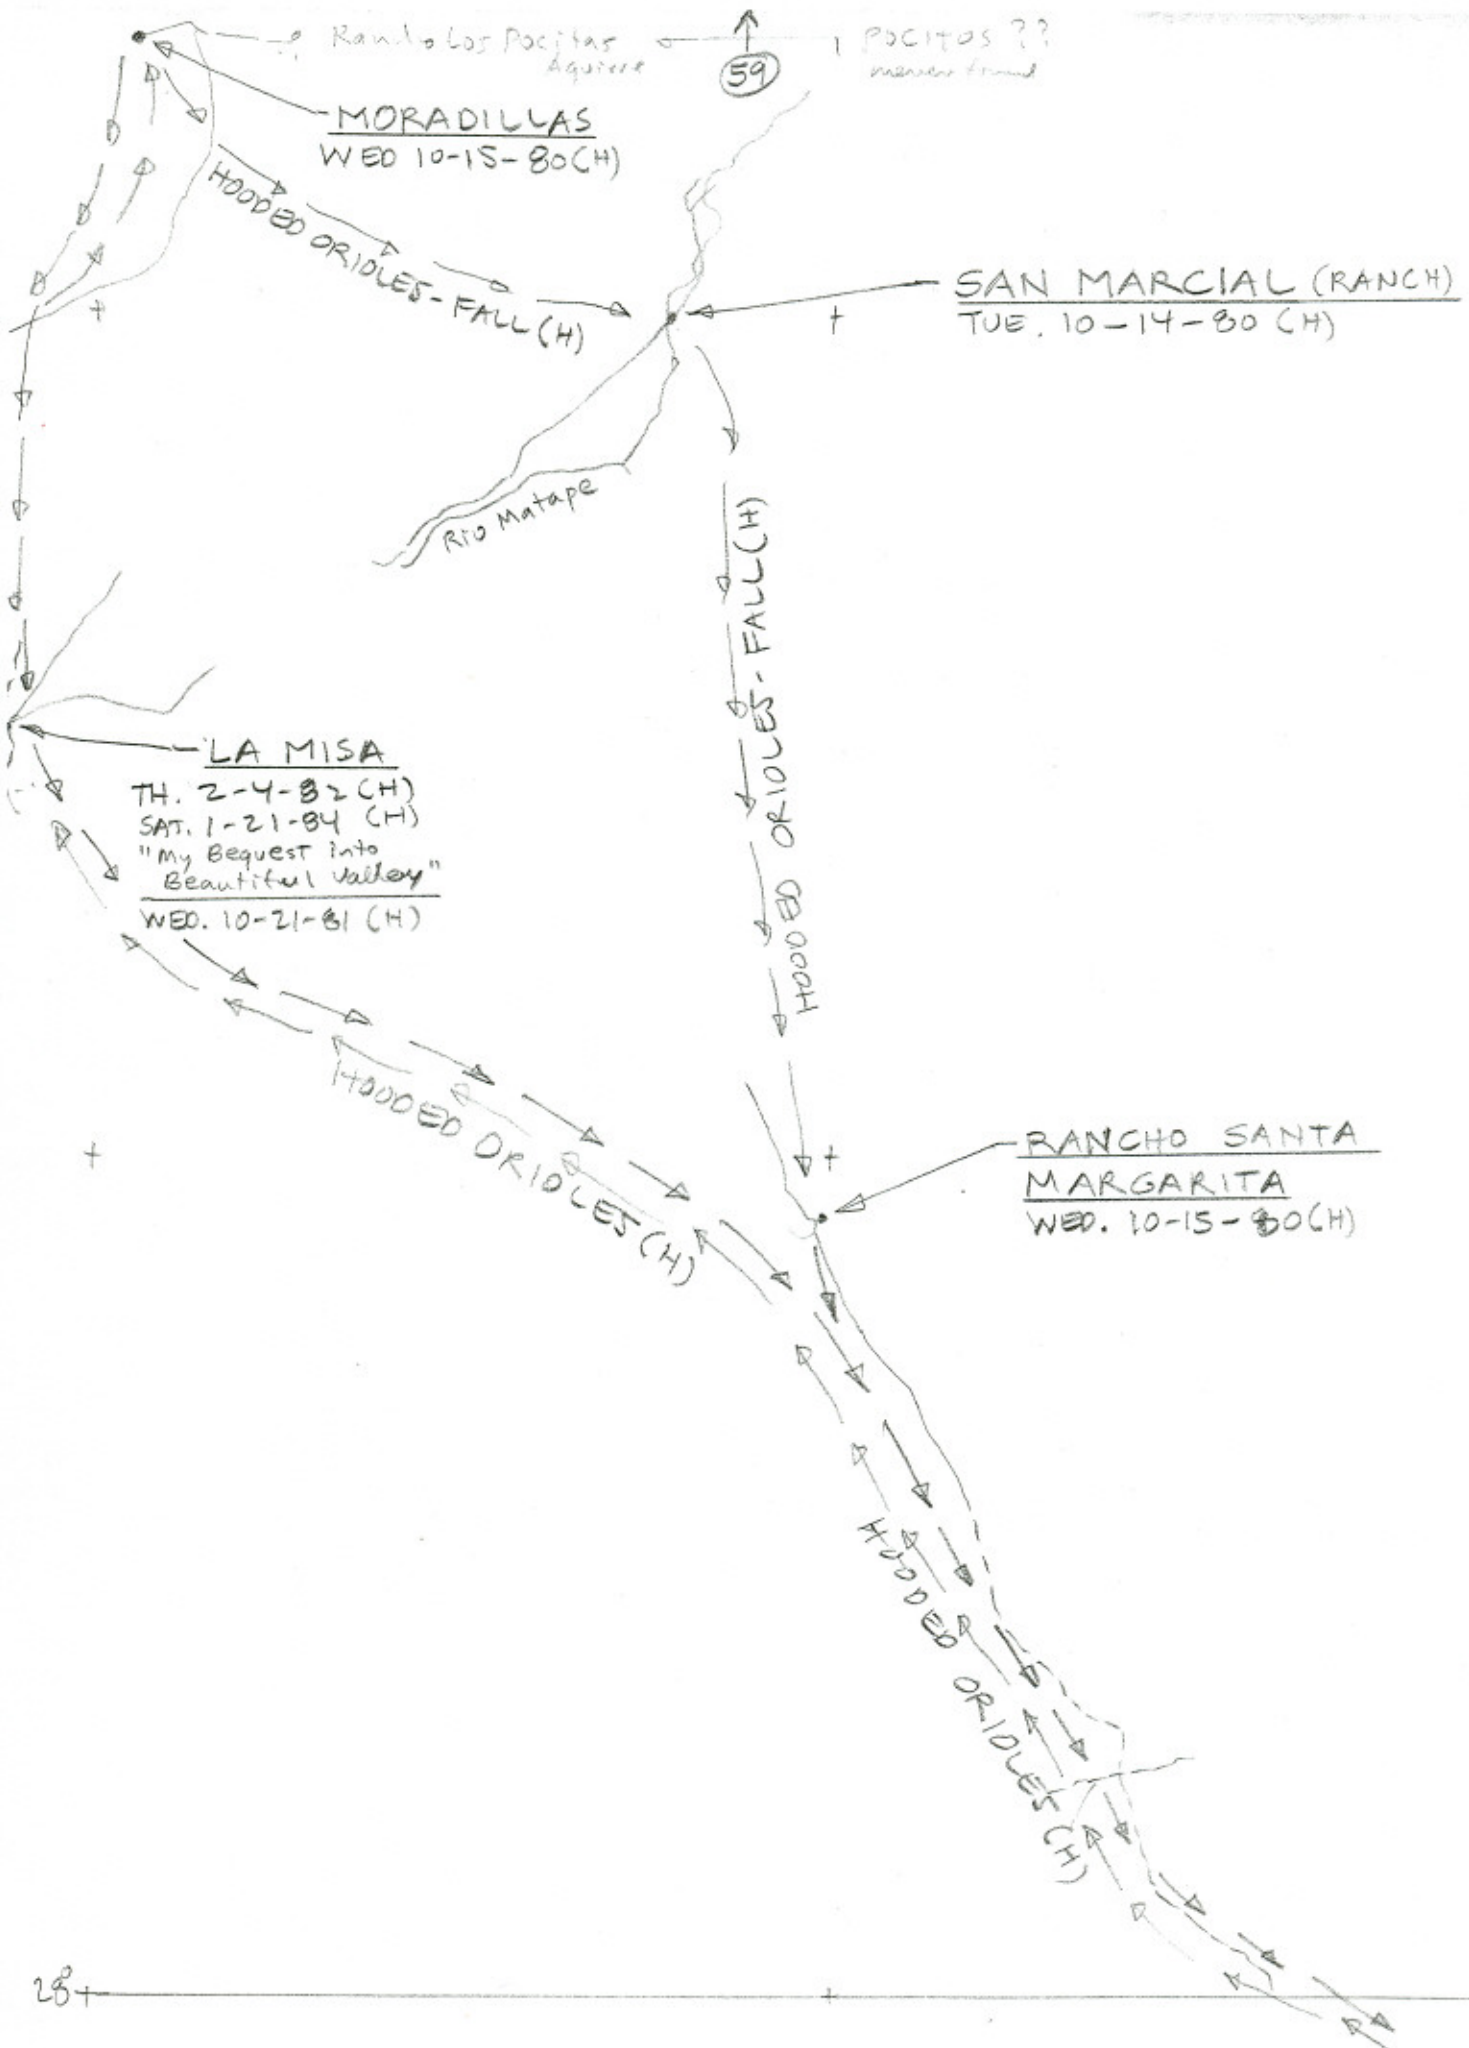 Rancho Los Pocitas
Aguirre
59
POCITOS ??
MORADILLAS
WED 10-15-80(H)
HOODED ORIOLES-FALL(H)
SAN MARCIAL (RANCH)
TUE. 10-14-80 (H)
Rio Matape
HOODED ORIOLES-FALL(H)
LA MISA
TH. 2-4-82 (H)
SAT. 1-21-84 (H)
"My Bequest into
Beautiful Valley"
WED. 10-21-81 (H)
HOODED ORIOLES (H)
RANCHO SANTA
MARGARITA
WED. 10-15-80(H)
HOODED ORIOLES (H)
28°